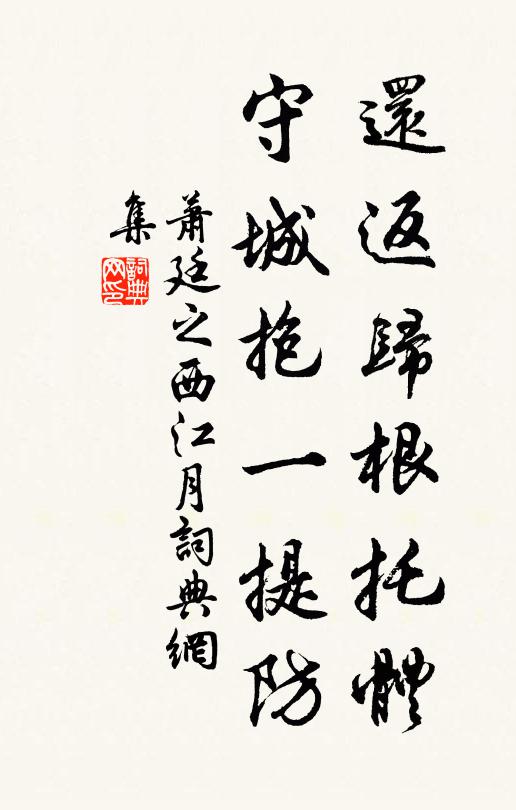 還返歸根托體
守城抱一提防
蕭廷之西江月詞典網
集
詞典
网印